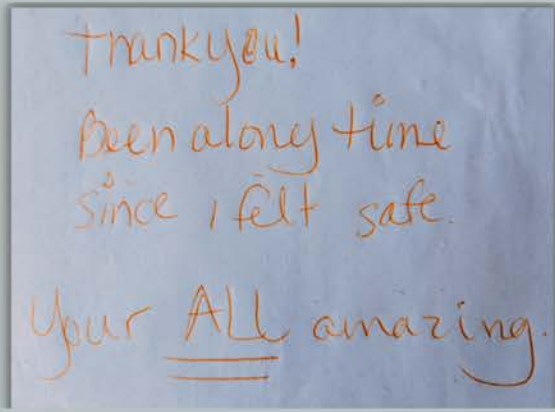 Thankyou!
Been along time
since i felt safe.
Your ALL amazing.